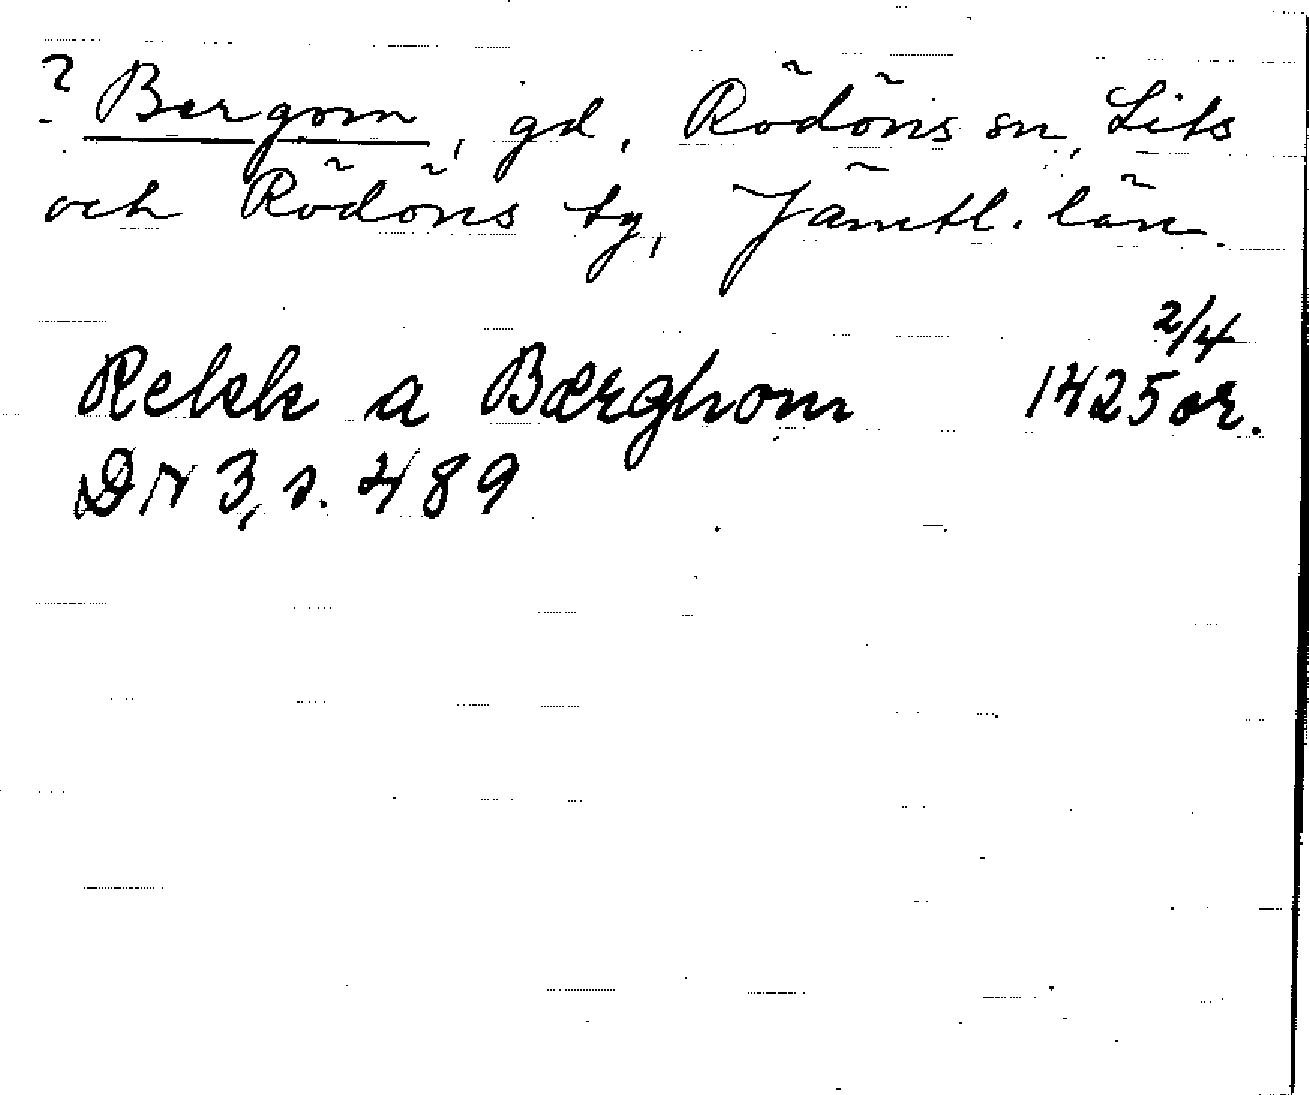 ? Bergom, gd, Rödöns sn, Lits
och Rödöns tg, Jämtl. län.
Rekk a Bærghom 1425 2/4 or.
DN 3, s. 489